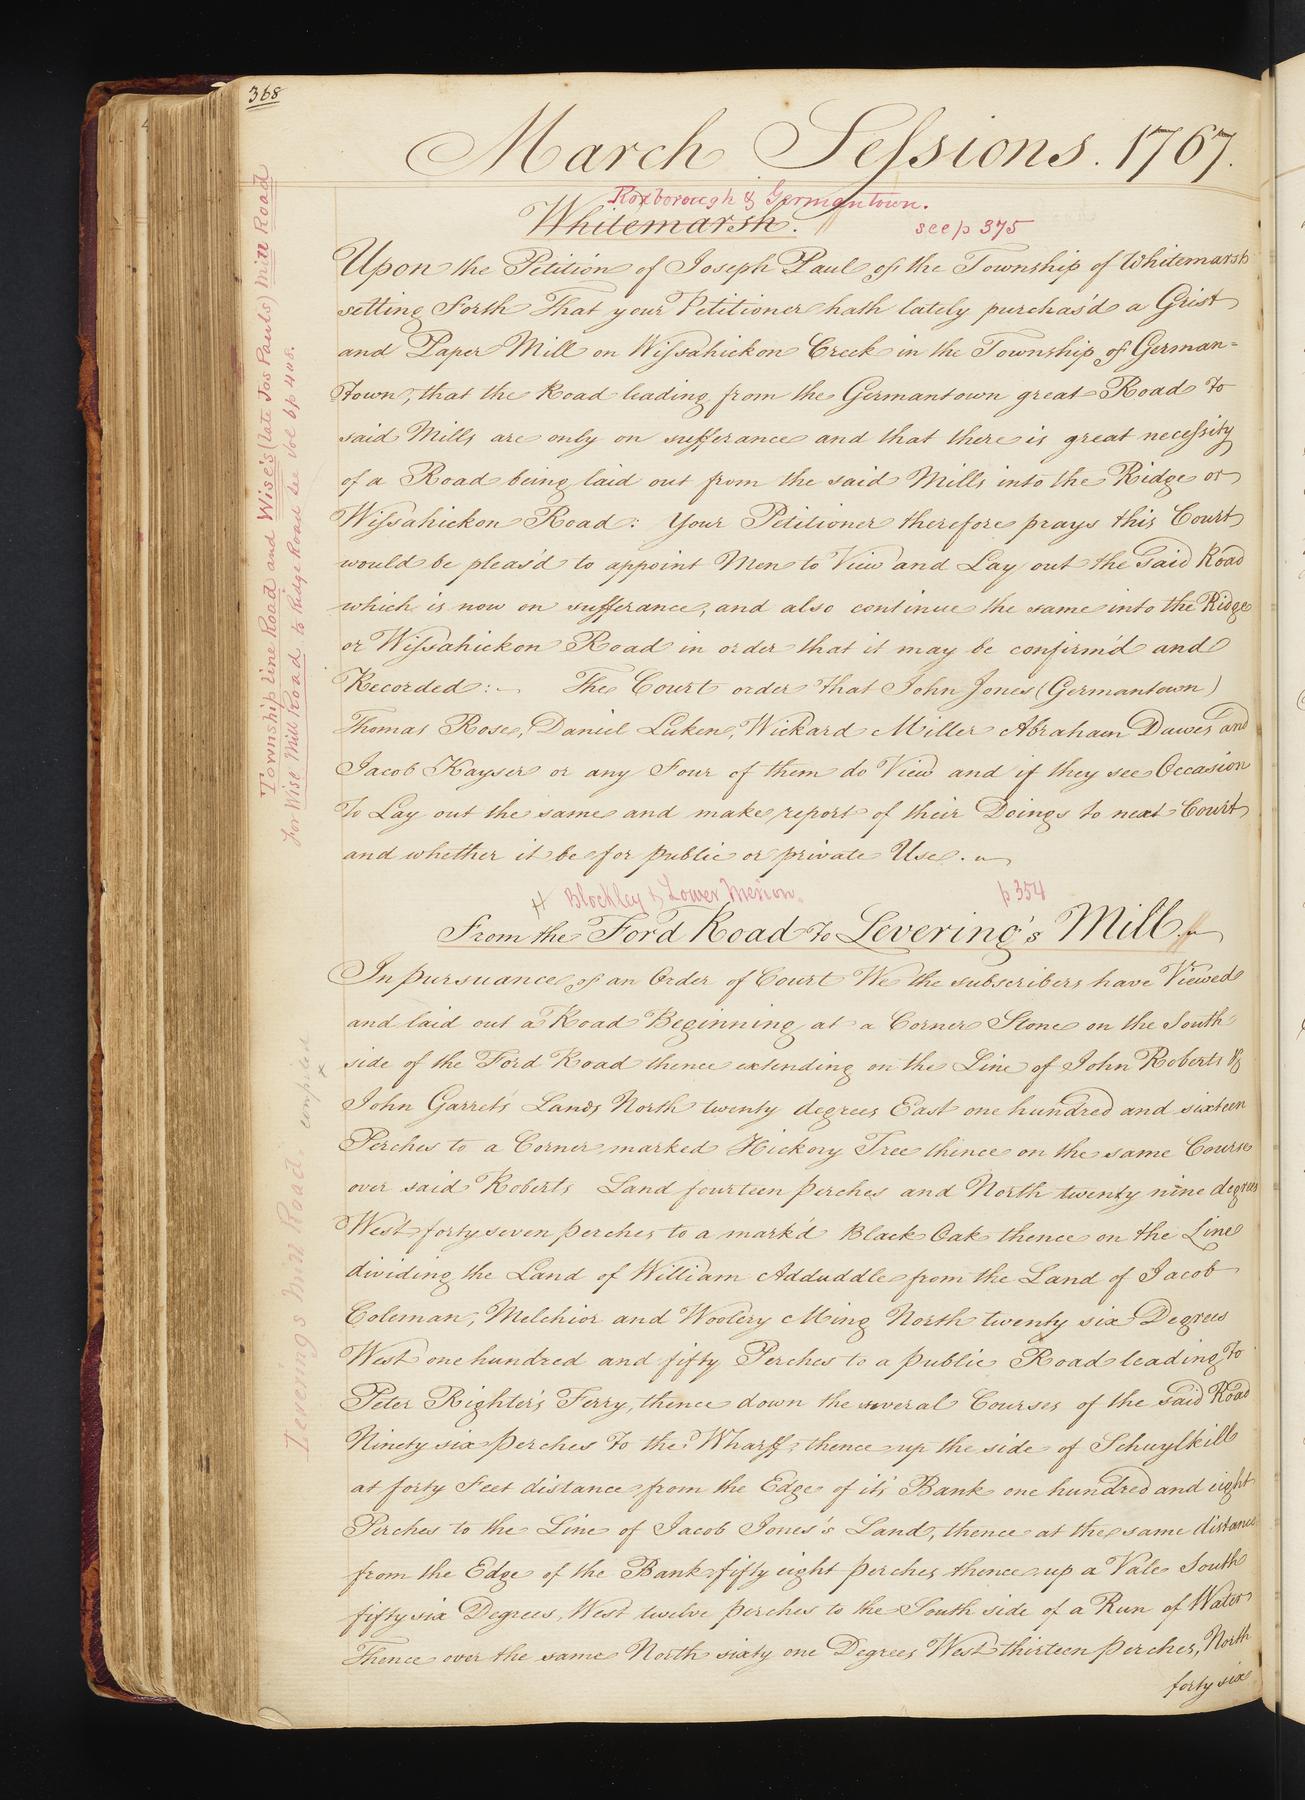 368
March Sessions. 1767.
Roxborough & Germantown.
Whitemarsh.
see p 375
Upon the Petition of Joseph Paul of the Township of Whitemarsh
setting Forth That your Petitioner hath lately purchas'd a Grist
and Paper Mill on Wissahickon Creek in the Township of German=
Town, that the Road leading from the Germantown great Road to
said Mills are only on sufferance and that there is great necessity
of a Road being laid out from the said Mills into the Ridge or
Wissahickon Road: Your Petitioner therefore prays this Court
would be pleas'd to appoint Men to View and Lay out the Said Road
which is now on sufferance, and also continue the same into the Ridge
or Wissahickon Road in order that it may be confirm'd and
Recorded:~ The Court order that John Jones (Germantown)
Thomas Rose, Daniel Luken, Wickard Miller Abraham Dawes and
Jacob Kayser or any Four of them do View and if they see Occasion
To Lay out the same and make report of their Doings to next Court
and whether it be for public or private Use.
Blockley & Lower Merion.
p 354
From the Ford Road To Levering's Mill.
In pursuance of an Order of Court We the subscribers have Viewed
and laid out a Road Beginning at a Corner Stone on the South
side of the Ford Road thence extending on the Line of John Roberts &
John Garret's Lands North twenty degrees East one hundred and sixteen
Perches to a Corner marked Hickory Tree thence on the same Course
over said Roberts Land fourteen perches and North twenty nine degrees
West forty seven perches to a mark'd Black Oak thence on the Line
dividing the Land of William Adduddle from the Land of Jacob
Coleman, Melchior and Woolery Ming North twenty six Degrees
West one hundred and fifty Perches to a public Road leading To
Peter Righter's Ferry, thence down the several Courses of the said Road
Ninety six perches To the Wharff; thence up the side of Schuylkill
at forty Feet distance from the Edge of its Bank one hundred and eight
Perches to the Line of Jacob Jones's Land, thence at the same distance
from the Edge of the Bank fifty eight perches thence up a Vale South
fifty six Degrees West twelve perches to the South side of a Run of Water
Thence over the same North sixty one Degrees West thirteen perches, North
forty six
Township Line Road and Wise's (late Jos Pauls) Mill Road
for Wise Mill Road to Ridge Road see vol 6 p 408.
Leverings Mill Road.